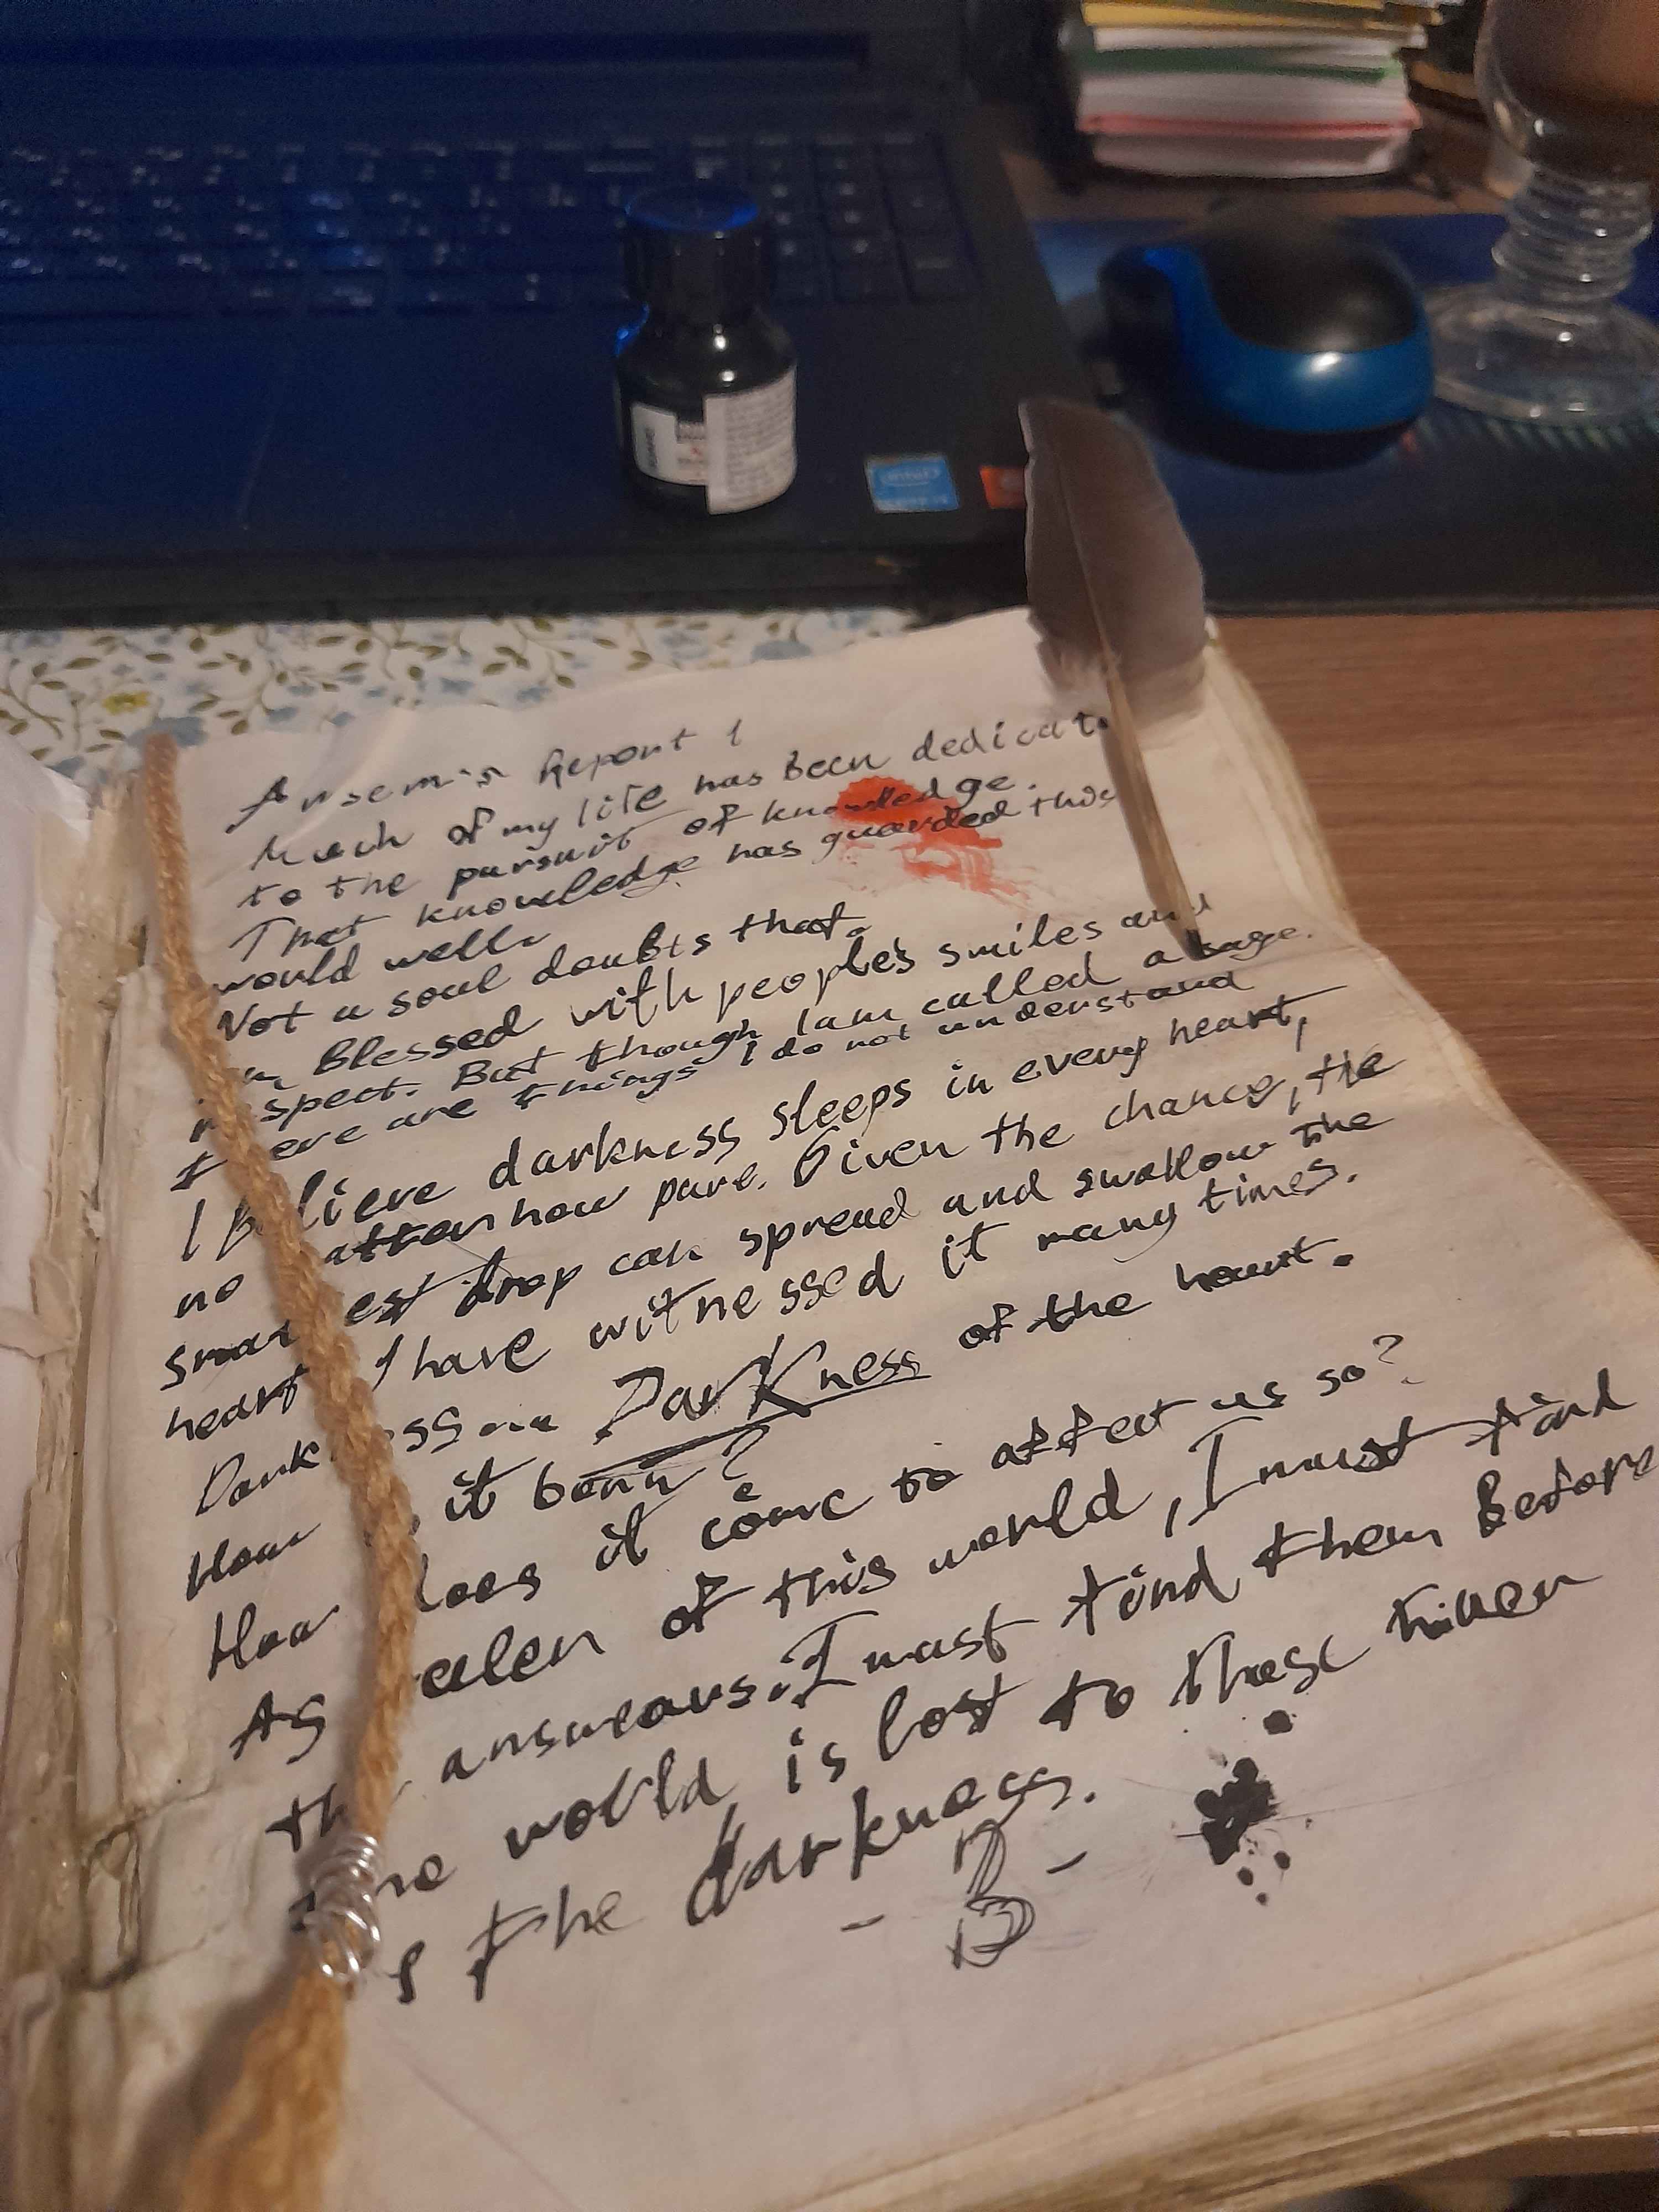 Ansem's Report 1
Much of my life has been dedicat
to the pursuit of knowledge.
That knowledge has guarded this
would well.
Not a soul doubts that.
Blessed with people's smiles and
spect. But though I am called a sage.
ere are things I do not understand
I believe darkness sleeps in every heart,
no atter how pure. Given the chance, the
smallest drop can spread and swallow the
heart I have witnessed it many times.
Darkness DarKness of the heart.
How it born?
How does it come to affect us so?
As ruler of this world, I must find
the answears. I must find them Before
the world is lost to those
the darkness.
- 13 -
intel